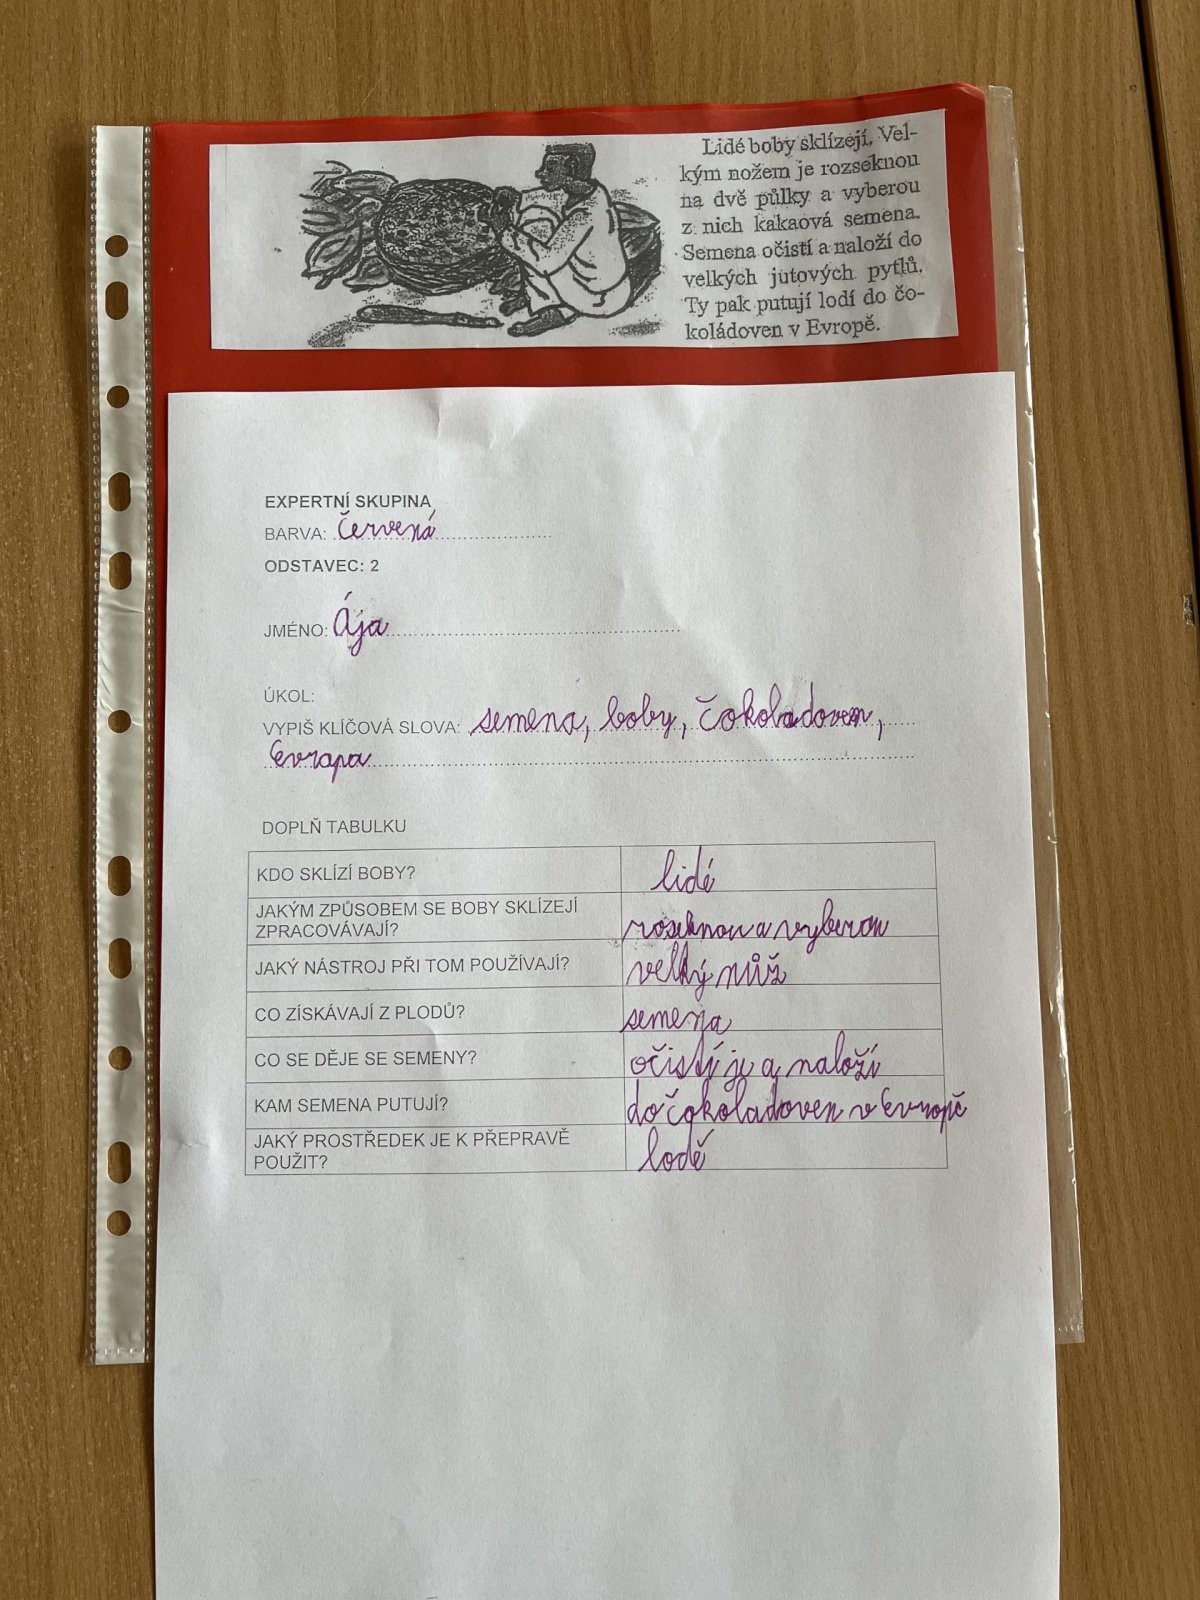 Lidé boby sklízejí. Vel-
kým nožem je rozseknou
na dvě půlky a vyberou
z nich kakaová semena.
Semena očistí a naloží do
velkých jutových pytlů.
Ty pak putují lodí do čo-
koládoven v Evropě.
EXPERTNÍ SKUPINA
BARVA: Červená
ODSTAVEC: 2
JMÉNO: Ája
ÚKOL:
VYPIŠ KLÍČOVÁ SLOVA: semena, boby, čokoladoven,
Evropa
DOPLŇ TABULKU
KDO SKLÍZÍ BOBY? lidé
JAKÝM ZPŮSOBEM SE BOBY SKLÍZEJÍ
ZPRACOVÁVAJÍ? roseknou a vyberou
JAKÝ NÁSTROJ PŘI TOM POUŽÍVAJÍ? velký nůž
CO ZÍSKÁVAJÍ Z PLODŮ? semena
CO SE DĚJE SE SEMENY? očistí je a naloží
KAM SEMENA PUTUJÍ? do čokoladoven v Evropě
JAKÝ PROSTŘEDEK JE K PŘEPRAVĚ
POUŽIT? lodě